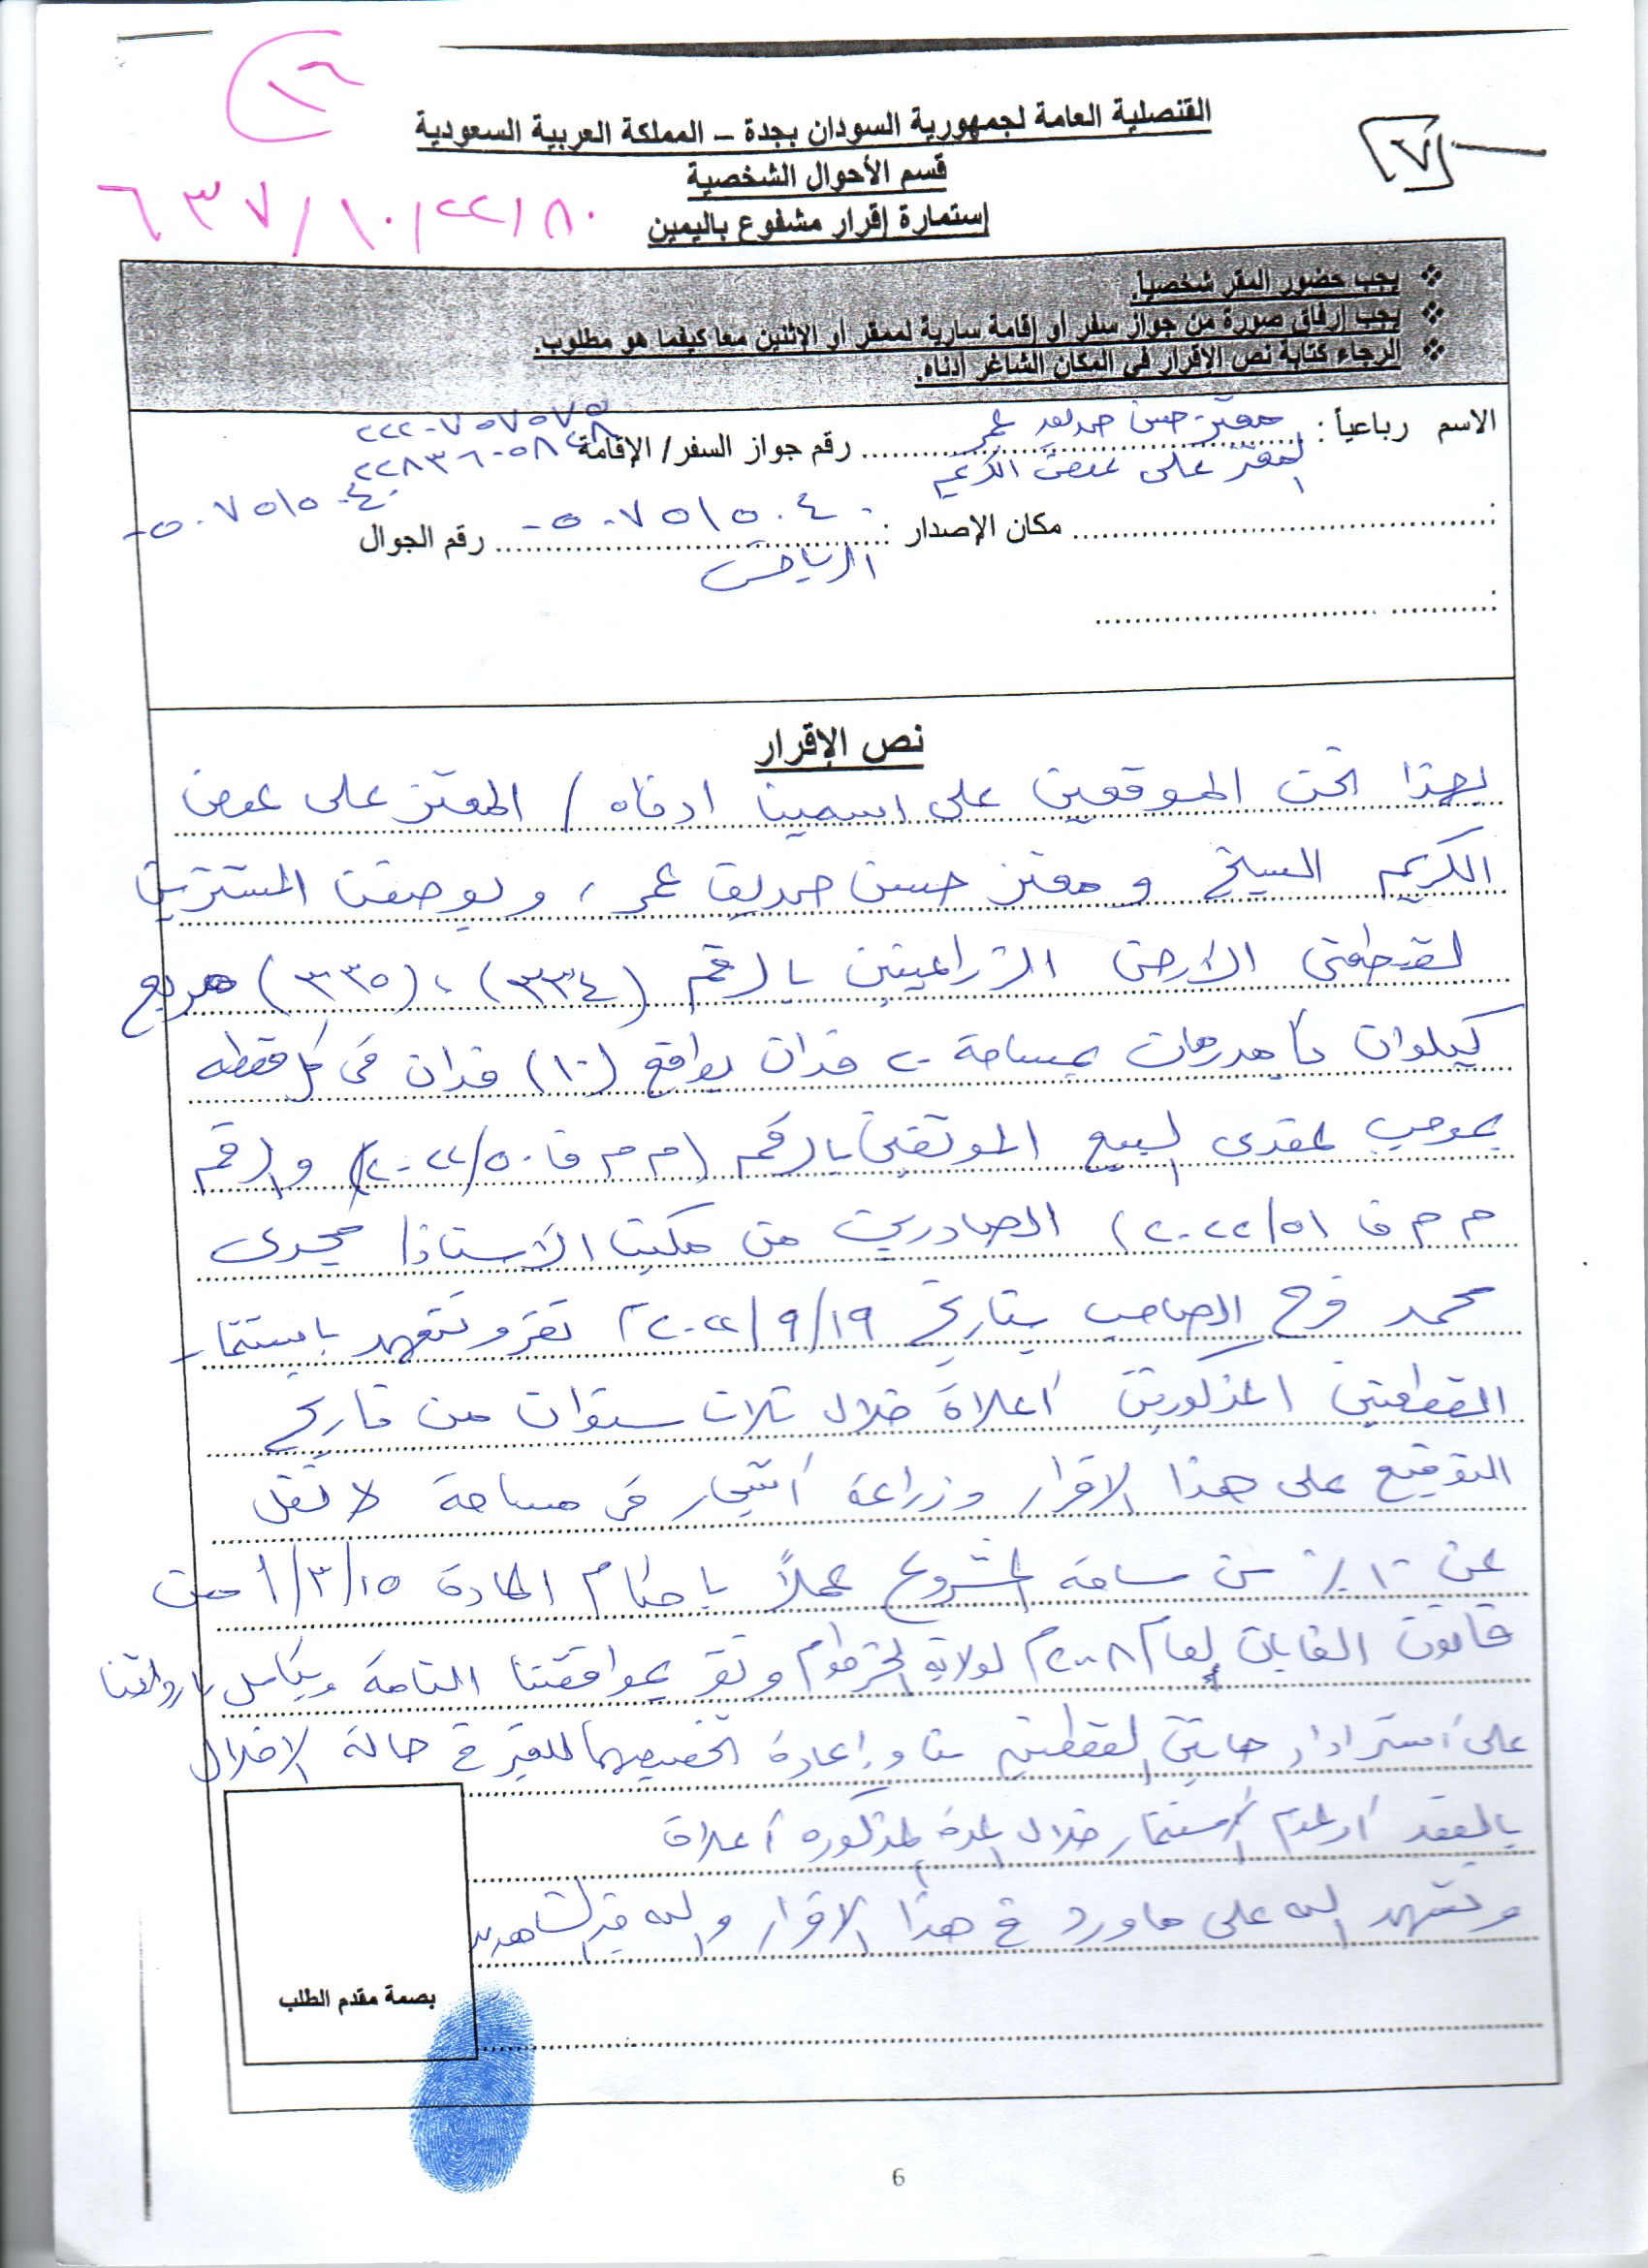 ١٦
٧
القنصلية العامة لجمهورية السودان بجدة – المملكة العربية السعودية
قسم الأحوال الشخصية
إستمارة إقرار مشفوع باليمين
٨٠/٢٢/١٠/٦٣٧
❖ يجب حضور المقر شخصياً.
❖ يجب إرفاق صورة من جواز سفر أو إقامة سارية للمقر أو الإثنين معا كيفما هو مطلوب.
❖ الرجاء كتابة نص الإقرار في المكان الشاغر أدناه.
الاسم رباعياً : معتز حسن صديق عمر رقم جواز السفر/ الإقامة ٢٢٢٠٧٥٧٥٧٥
المعتز على عوض الكريم
: مكان الإصدار : ٠٥٠٧٥١٥٠٤٠ رقم الجوال ٠٥٠٧٥١٥٠٤٠
الرياض
:
نص الإقرار
بهذا نحن الموقعين على اسمينا ادناه / المعتز على عوض
الكريم الشيخ و معتز حسن صديق عمر ، وبوصفنا المشترين
لقطعتى الارض الزراعيتين بالرقم (٣٣٤) ، (٣٣٥) مربع
كيلوان بمساحة ٢٠ فدان بواقع (١٠) فدان فى كل قطعه
بموجب عقدى البيع الموثقين بالرقم (م م ف ٢٠٢٢/٥٠) والرقم
م م ف ٢٠٢٢/٥١) الصادرين من مكتب الأستاذ/ مجدى
محمد فرح الصاحب بتاريخ ٢٠٢٢/٩/١٩م نقر ونتعهد باستثمار
القطعتين المذكورتين أعلاة خلال ثلاث سنوات من تاريخ
التوقيع على هذا الاقرار وزراعة أشجار فى مساحة لا تقل
عن ١٠٪ من مساحة المشروع عملاً باحكام المادة ١٥/٣/أ من
قانون الغابات لعام ٢٠٠٨م لولاية الخرطوم ونقر بموافقتنا التامة وبكامل بارادتنا
على استرداد هاتين القطعتين منا وإعادة تخصيصهما للغير فى حالة الاخلال
بالعقد أو عدم الاستثمار خلال المدة المذكوره أعلاة
ونشهد الله على ماورد فى هذا الاقرار والله خير الشاهدين
بصمة مقدم الطلب
6